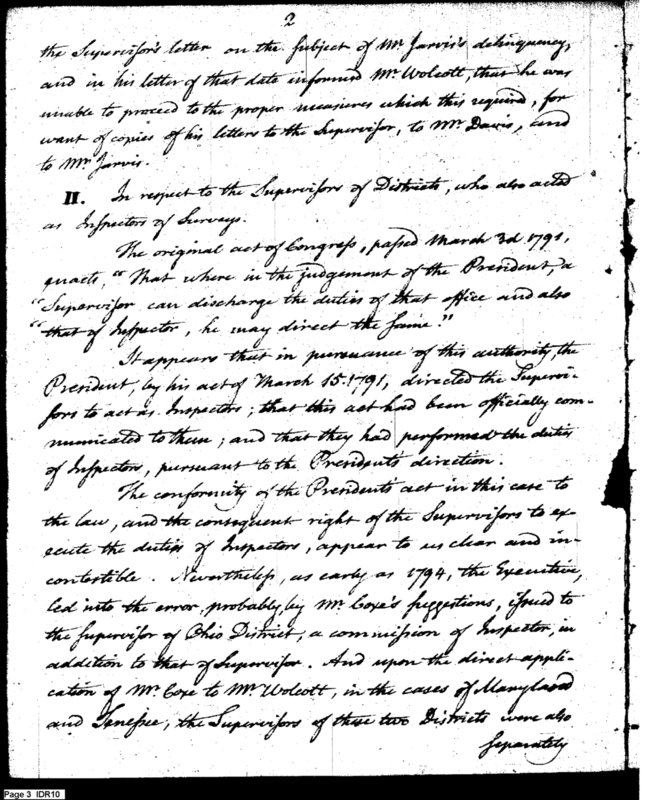 2
the Supervisor's letter on the subject of Mr Jarvis's delinquency,
and in his letter of that date informed Mr Wolcott, that he was
unable to proceed to the proper measures which this required, for
want of copies of his letters to the Supervisor, to Mr Davis, and
to Mr Jarvis.
II. In respect to the Supervisors of Districts, who also acted
as Inspectors of Surveys.
The original act of Congress, passed March 3d 1791,
enacts, "That where in the judgement of the President, a
"Supervisor can discharge the duties of that office and also
"that of Inspector, he may direct the same."
It appears that in pursuance of this authority, the
President, by his act of March 15. 1791, directed the Supervi-
sors to act as Inspectors; that this act had been officially com-
municated to them; and that they had performed the duties
of Inspectors, pursuant to the President's direction.
The conformity of the President's act in this case to
the law, and the consequent right of the Supervisors to ex-
ecute the duties of Inspectors, appear to us clear and in-
contestible. Nevertheless, as early as 1794, the Executive,
led into the error, probably, by Mr. Coxe's suggestions, issued to
the supervisor of Ohio District, a commission of Inspector, in
addition to that of Supervisor. And upon the direct appli-
cation of Mr. Coxe to Mr. Wolcott, in the cases of Maryland
and Tenessee, the Supervisors of these two Districts were also
separately
Page 3 IDR10